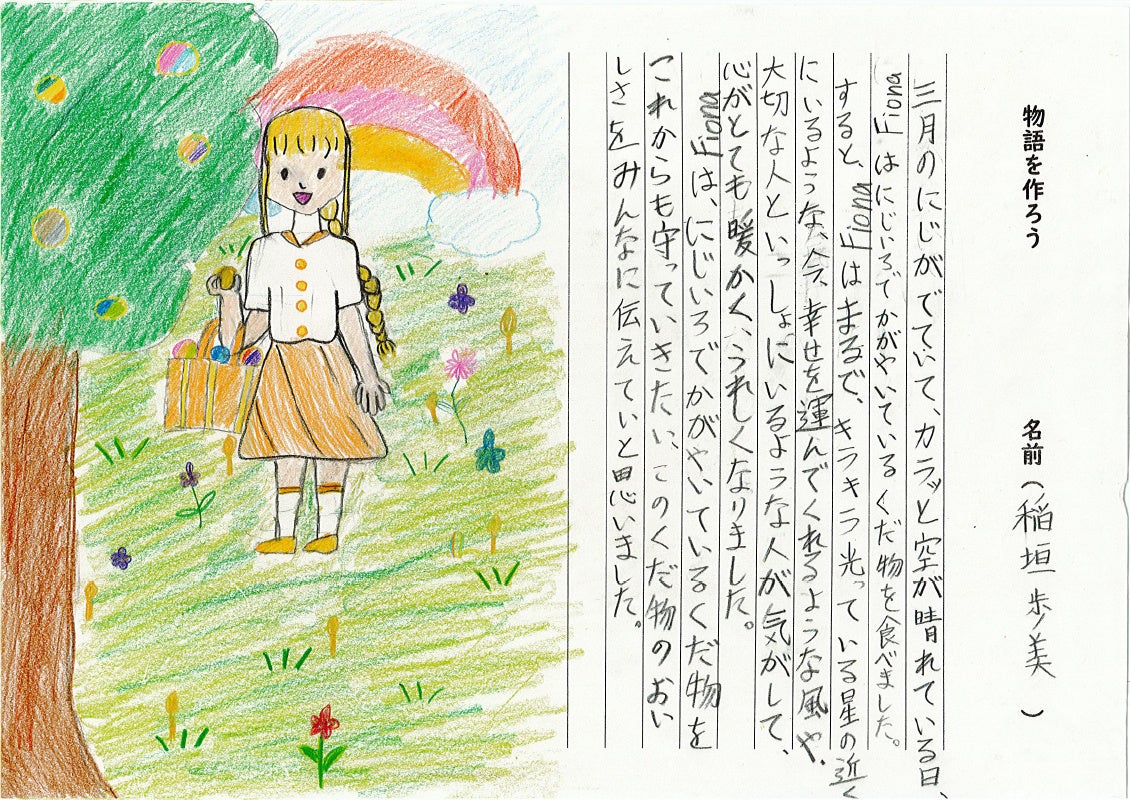 物語を作ろう　名前（稲垣歩美）
三月のにじがでていて、カラッと空が晴れている日、
Fionaはにじいろでかがやいているくだ物を食べました。
すると、Fionaはまるで、キラキラ光っている星の近く
にいるような、今、幸せを運んでくれるような風や、
大切な人といっしょにいるような人が気がして、
心がとても暖かく、うれしくなりました。
Fionaは、にじいろでかがやいているくだ物を
これからも守っていきたい、このくだ物のおい
しさをみんなに伝えていと思いました。